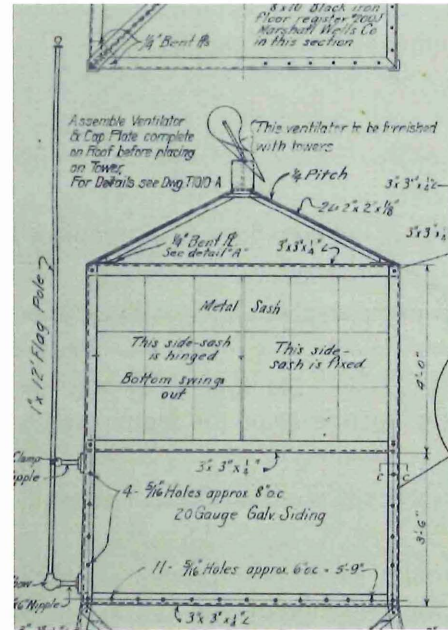 8"x10" Black iron
floor register "200J"
Marshall Wells Co
in this section
1/4" Bent Pls
Assemble Ventilator
& Cap Plate complete
on Roof before placing
on Tower.
For Details see Dwg. T1010-A
This ventilator to be furnished
with towers
1/4 Pitch
2Ls 2"x 2"x 1/8"
3"x 3"x 1/4" L
3"x 3"x 1/4
1/4" Bent Pl.
See detail "A"
3"x3"x 1/4" L
1"x 12' Flag Pole
Metal Sash
This side-sash
is hinged
Bottom swings
out
This side-
sash is fixed
4'-0"
Clamp
Nipple
3"x 3"x 1/4"
C C
4 - 5/16" Holes approx 8" oc
20 Gauge Galv. Siding
3'-6"
11 - 5/16" Holes approx 6" oc = 5'-9"
x6" Nipple
3"x 3"x 1/4" L